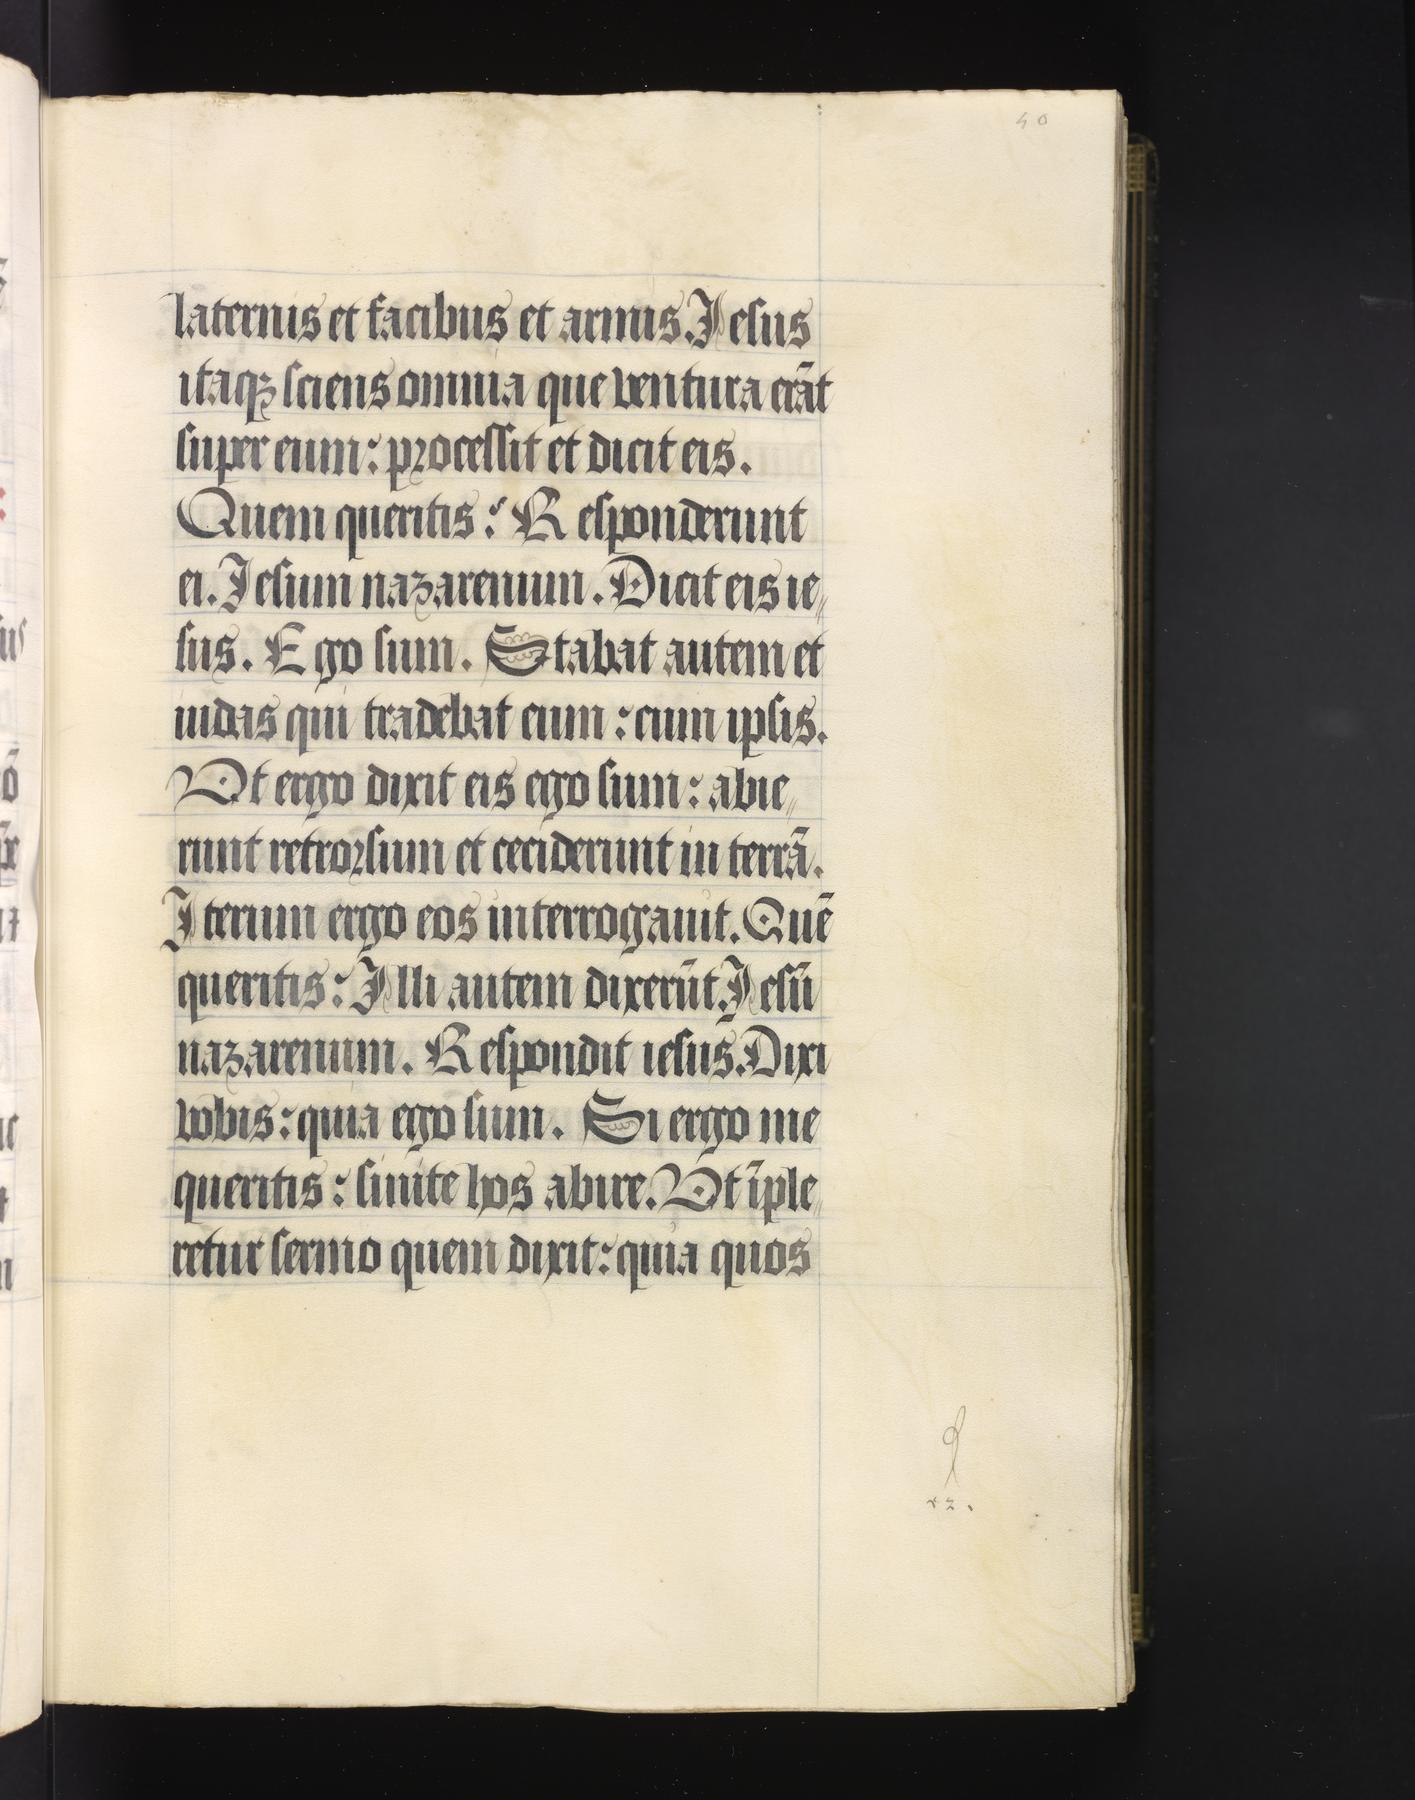 40
laternis et facibus et armis. Jesus
itaqꝫ sciens omnia que ventura erāt
super eum: processit et dicit eis.
Quem queritis: Responderunt
ei. Jesum nazarenum. Dicit eis ie„
sus. Ego sum. Stabat autem et
iudas qui tradebat eum: cum ipsis.
Vt ergo dixit eis ego sum: abie„
runt retrorsum et ceciderunt in terrā.
Iterum ergo eos interrogauit. Quē
queritis: Illi autem dixerūt. Jesū
nazarenum. Respondit iesus. Dixi
vobis: quia ego sum. Si ergo me
queritis: sinite hos abire. Vt īple„
retur sermo quem dixit: quia quos